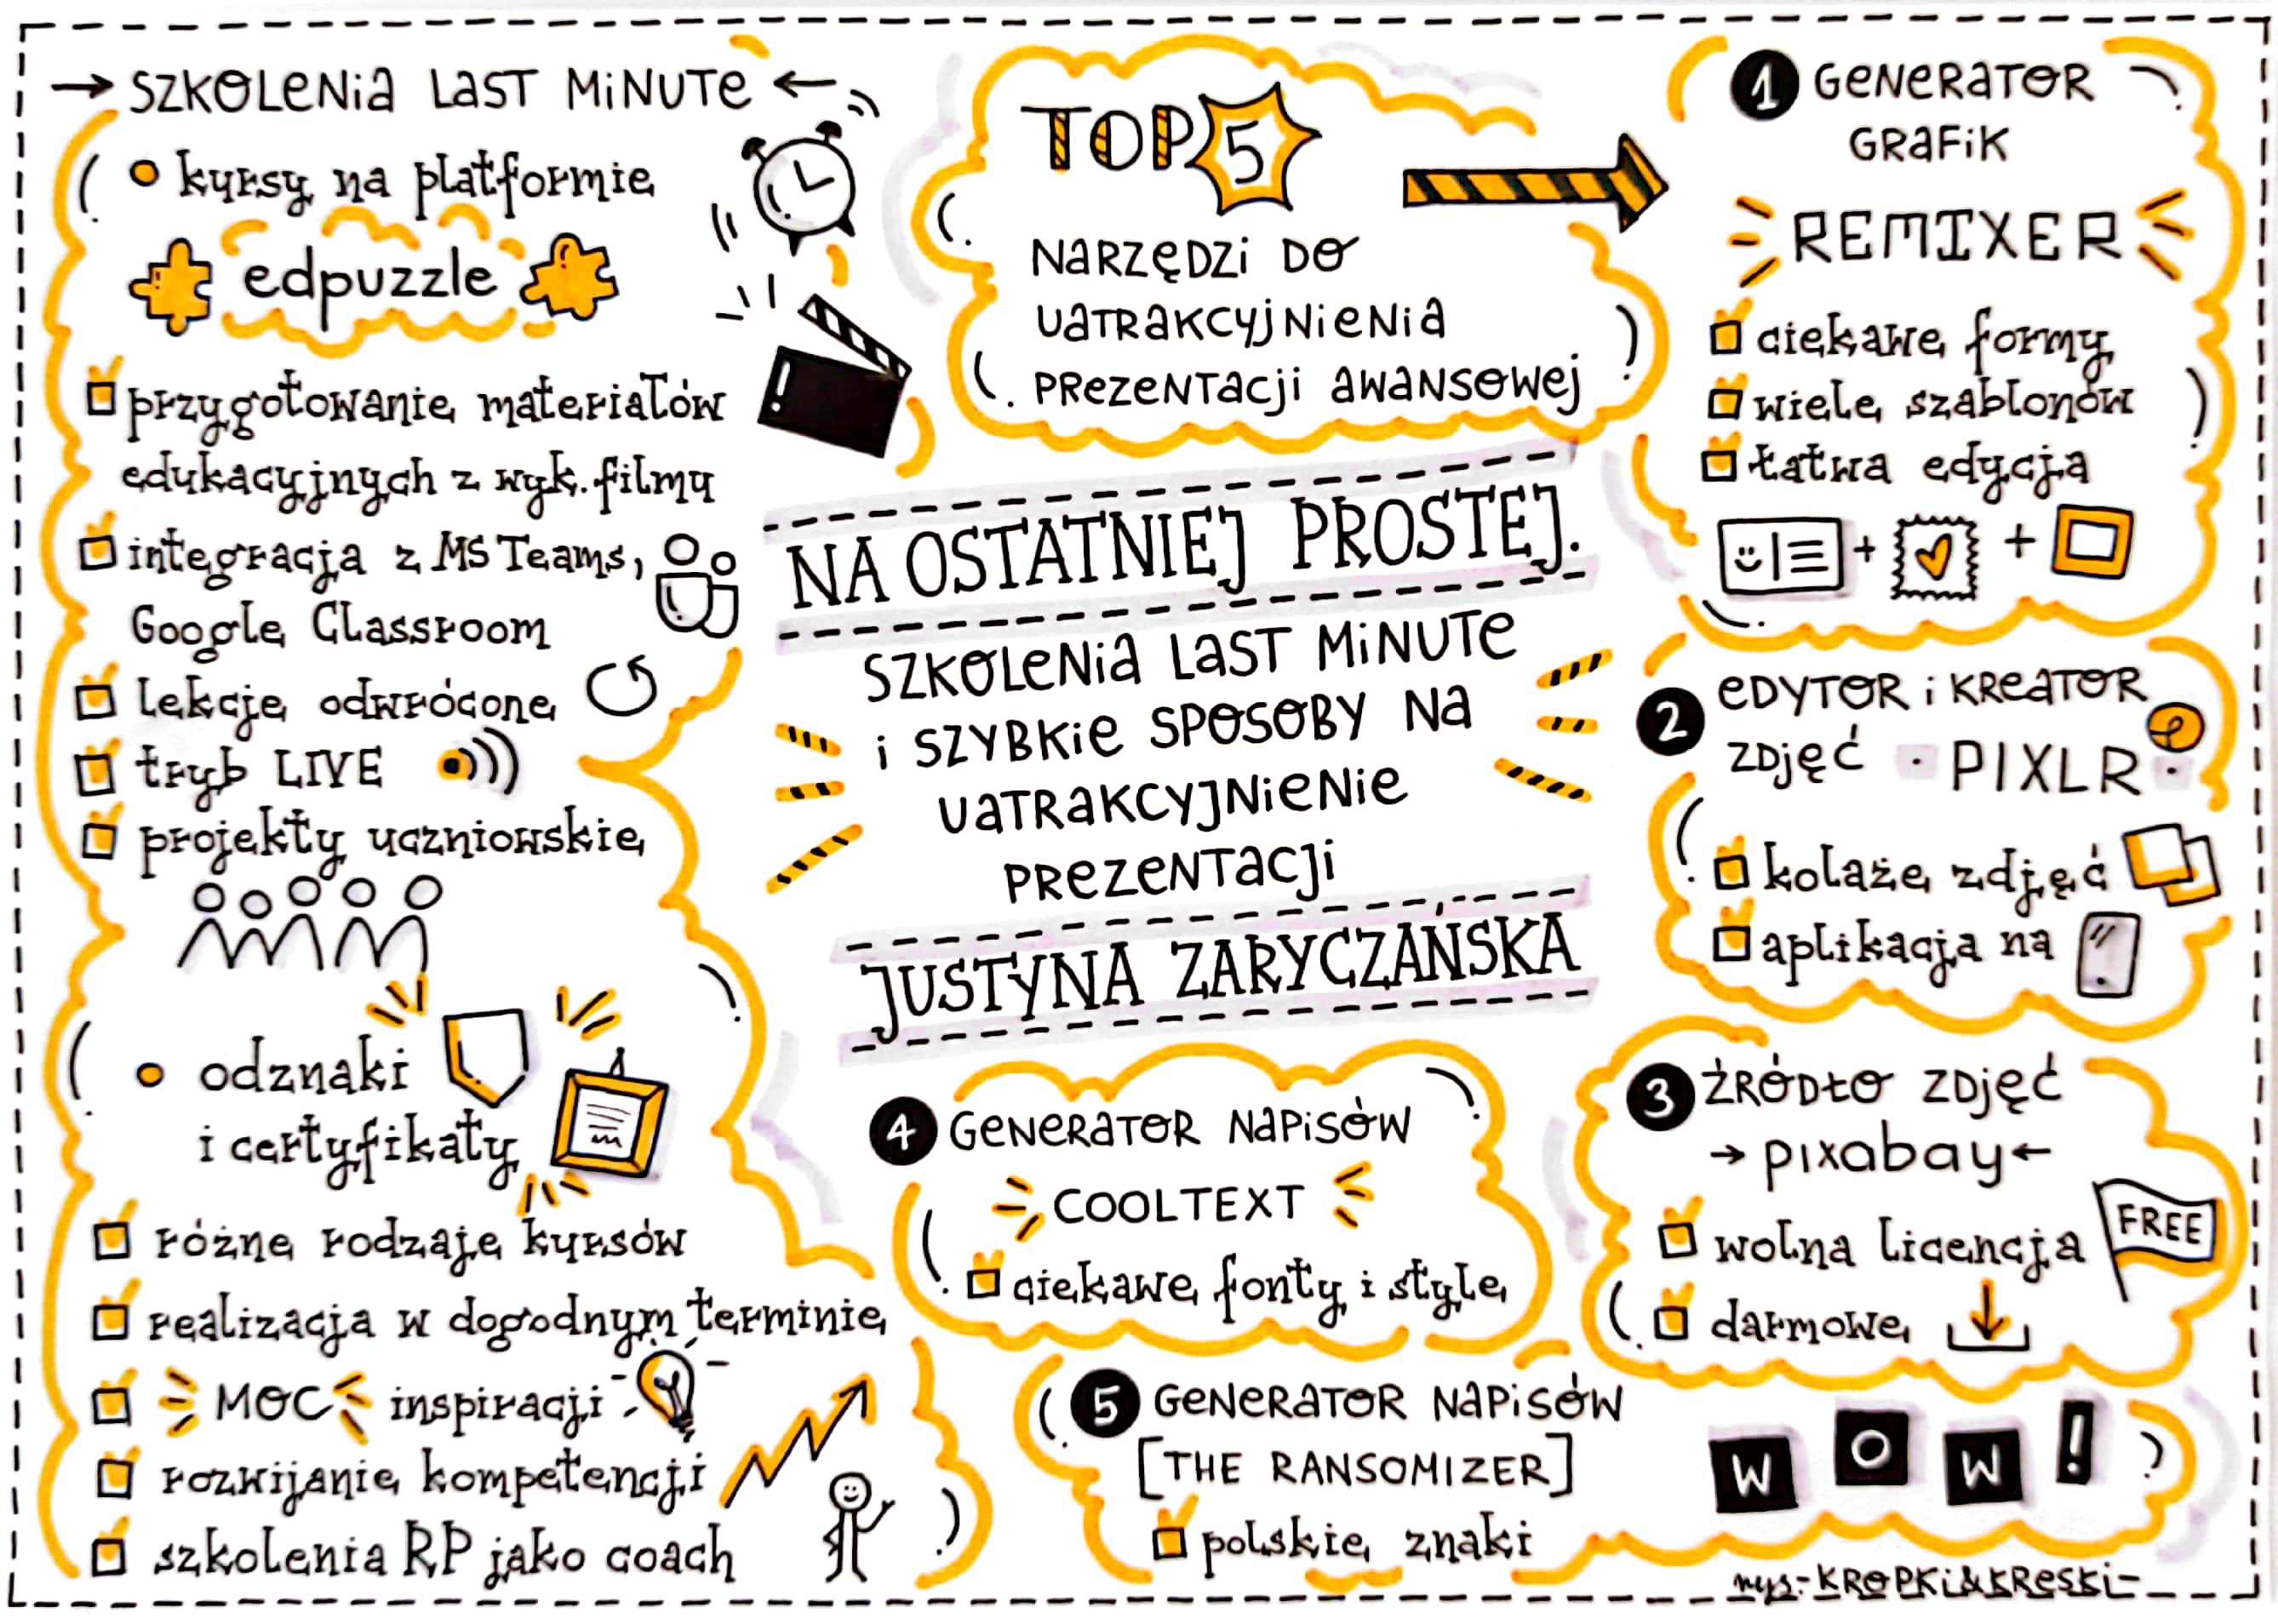 → SZKOLENIA LAST MINUTE ←
• kursy na platformie
edpuzzle
przygotowanie materiałów
edukacyjnych z wyk. filmu
integracja z MS Teams,
Google Classroom
lekcje odwrócone
tryb LIVE
projekty uczniowskie
• odznaki
i certyfikaty
różne rodzaje kursów
realizacja w dogodnym terminie
MOC inspiracji
rozwijanie kompetencji
szkolenia RP jako coach
TOP 5
NARZĘDZI DO
UATRAKCYJNIENIA
PREZENTACJI AWANSOWEJ
NA OSTATNIEJ PROSTEJ.
SZKOLENIA LAST MINUTE
i SZYBKIE SPOSOBY NA
UATRAKCYJNIENIE
PREZENTACJI
JUSTYNA ZARYCZAŃSKA
1 GENERATOR
GRAFIK
REMIXER
ciekawe formy
wiele szablonów
łatwa edycja
2 EDYTOR i KREATOR
ZDJĘĆ · PIXLR ·
kolaże zdjęć
aplikacja na
3 ŹRÓDŁO ZDJĘĆ
→ pixabay ←
wolna licencja
FREE
darmowe
4 GENERATOR NAPISÓW
COOLTEXT
ciekawe fonty i style
5 GENERATOR NAPISÓW
[THE RANSOMIZER]
polskie znaki
WOW!
rys. KROPKi&KRESKi